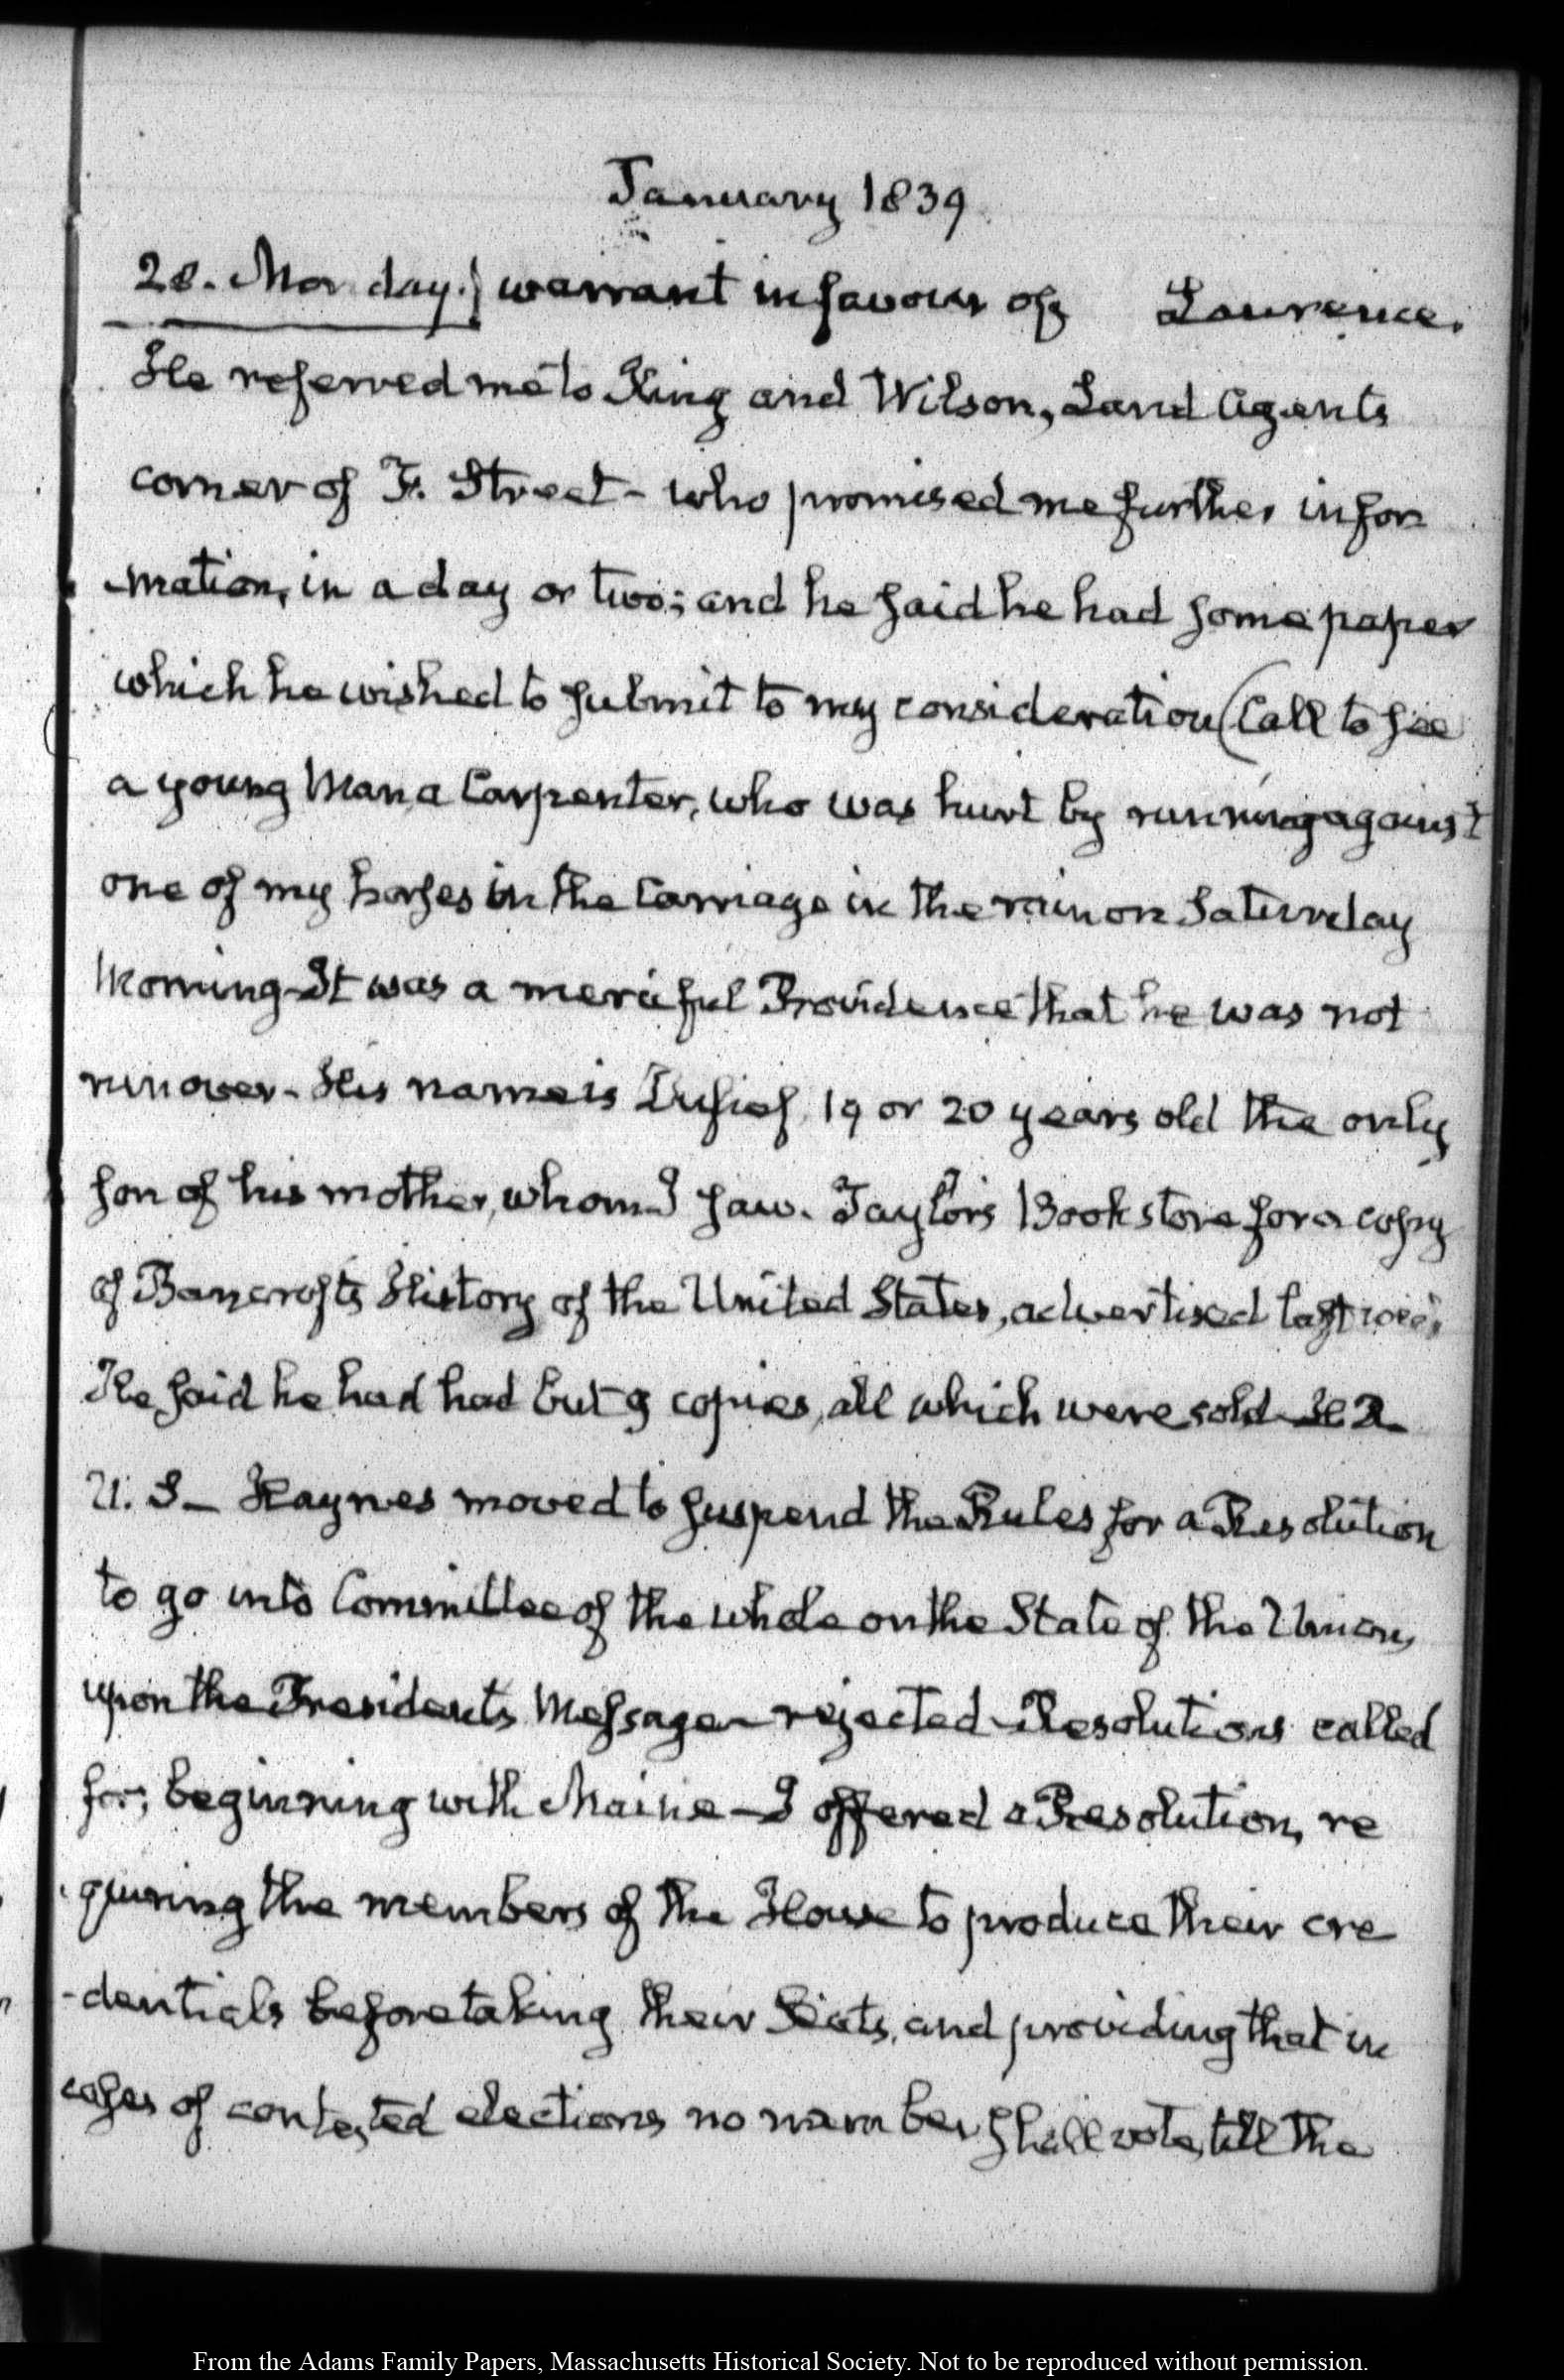 January 1839
28. Monday.} warrant in favour of Laurence.
He referred me to King and Wilson, Land Agents
corner of F. Street – who promised me further infor
-mation, in a day or two; and he said he had some paper
which he wished to submit to my consideration (Call to see
a young Man a Carpenter, who was hurt by running against
one of my horses in the Carriage in the rain on Saturday
Morning – It was a merciful Providence that he was not
run over – His name is 19 or 20 years old the only
son of his mother, whom I saw. Taylor's Bookstore for a copy
of Bancroft's History of the United States, advertised last
He said he had had but 9 copies, all which were sold – H R
U. S – Haynes moved to suspend the Rules for a Resolution
to go into Committee of the whole on the State of the Union,
upon the President's Message – rejected – Resolutions called
for; beginning with Maine – I offered a Resolution, re
quiring the members of the House to produce their cre
-dentials before taking their Seats, and providing that in
cases of contested elections no member shall vote, till the
From the Adams Family Papers, Massachusetts Historical Society. Not to be reproduced without permission.